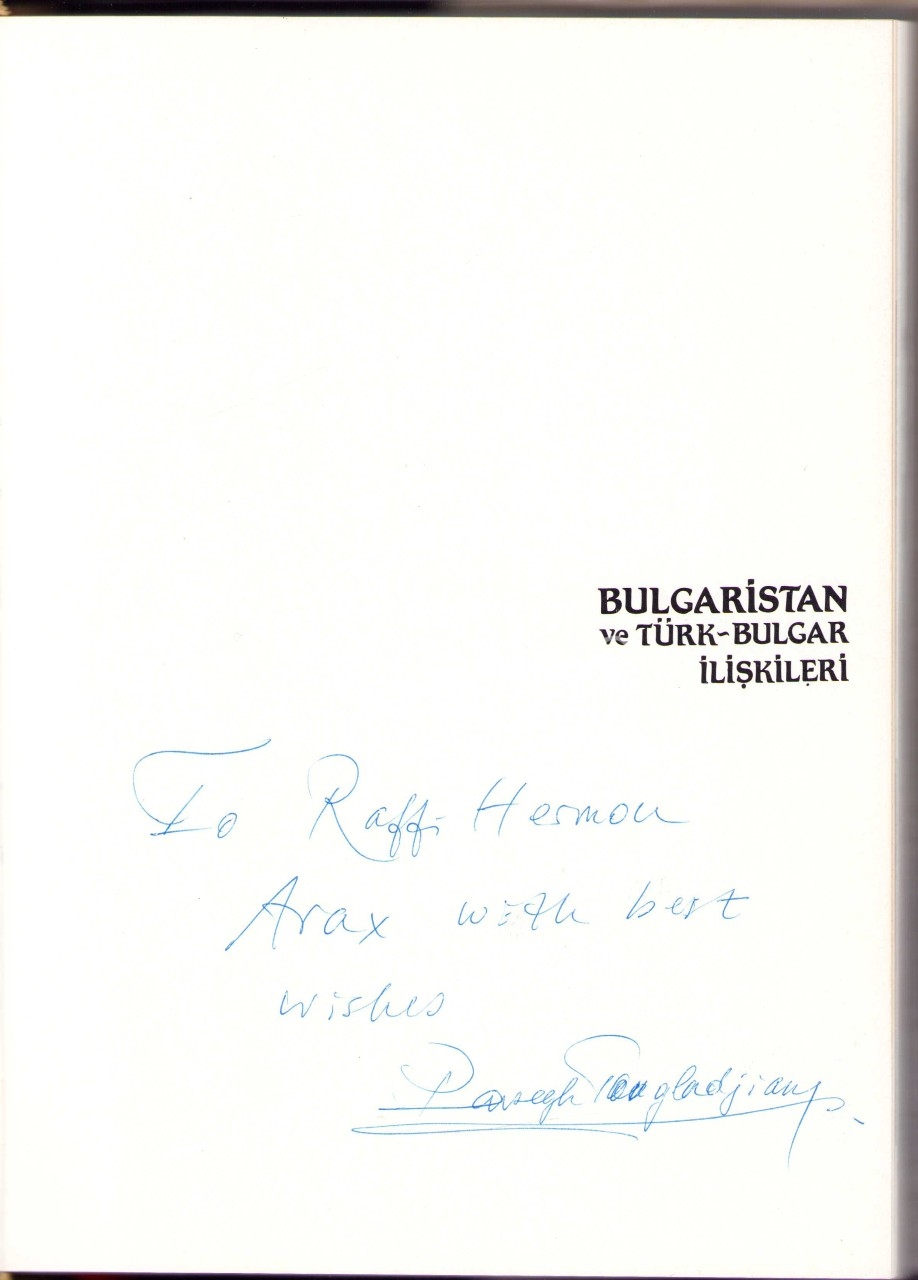 BULGARİSTAN
ve TÜRK-BULGAR
İLİŞKİLERİ
To Raffi Hermon
Arax with best
wishes
Parsegh Touygladjian